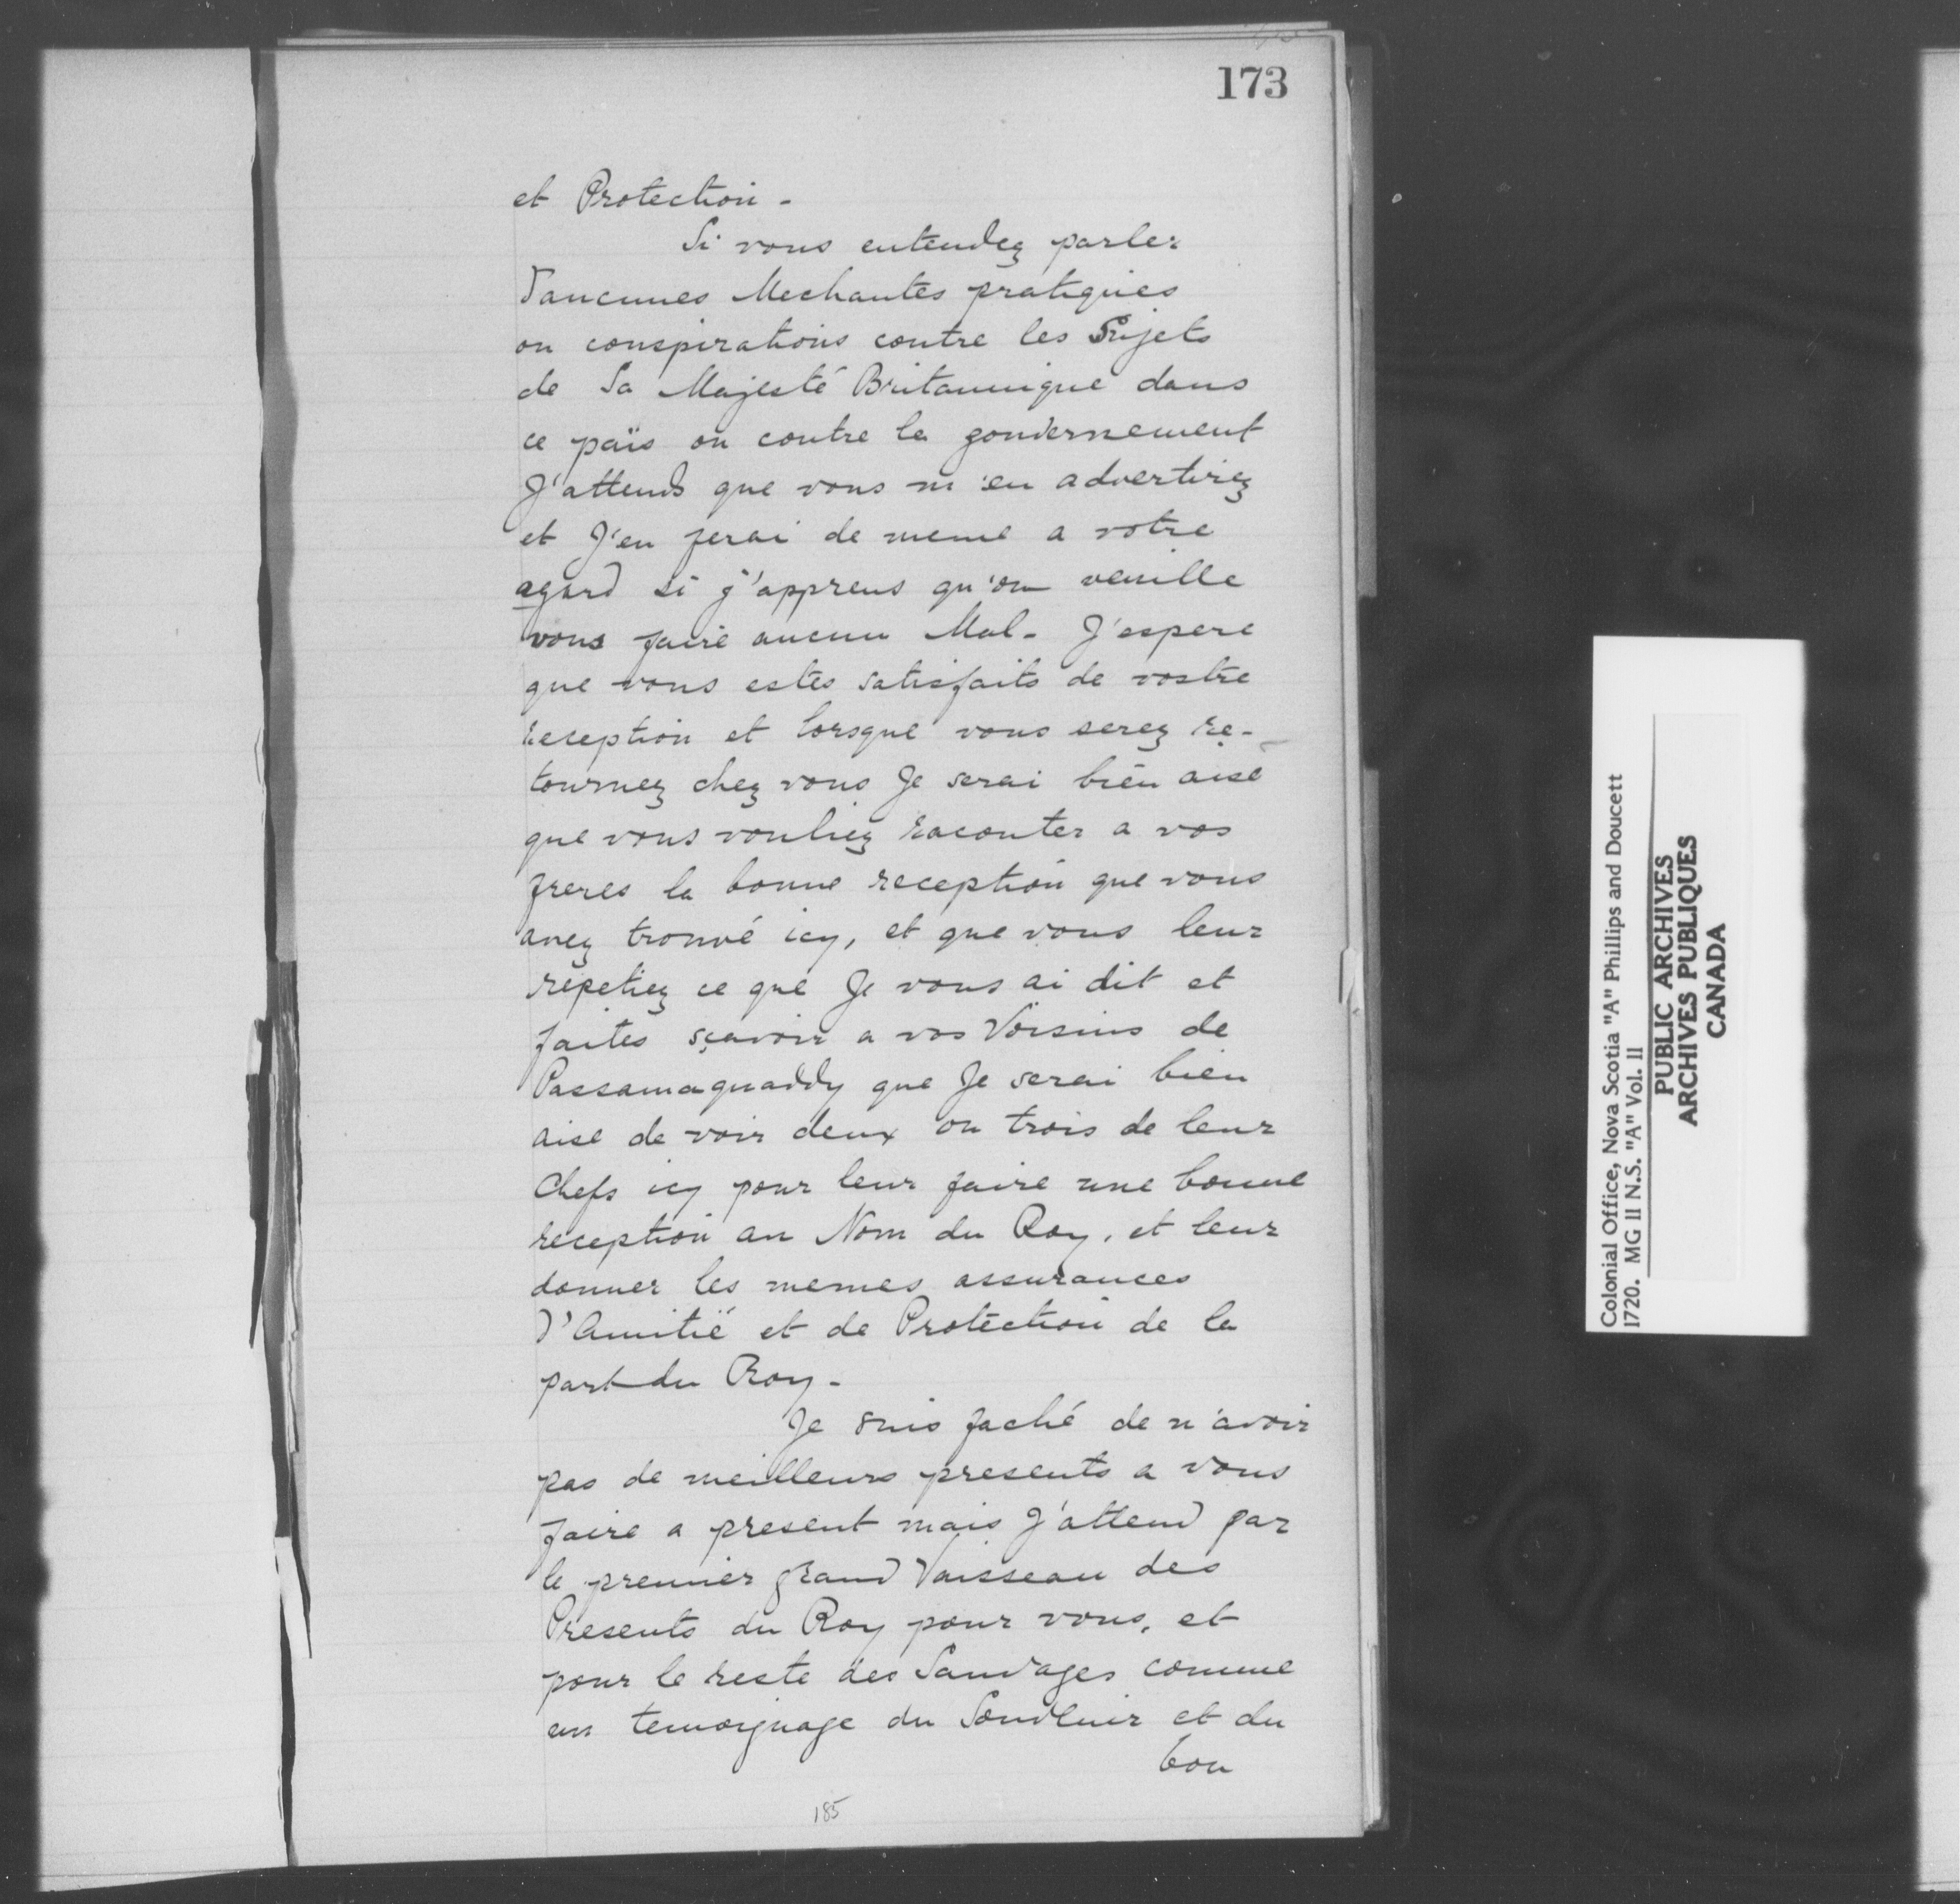 173
et Protection -
Si vous entendez parler
d'aucunes Mechantes pratiques
ou conspirations contre les Sujets
de Sa Majesté Britannique dans
ce païs ou contre le gouvernement
J'attends que vous m'en advertirez
et J'en ferai de meme a votre
agard si j'apprens qu'on veuille
vous faire aucun Mal - J'espere
que vous estes satisfaits de vostre
reception et lorsque vous serez re-
tournez chez vous Je serai bien aise
que vous vouliez raconter a vos
freres la bonne reception que vous
avez trouvé icy, et que vous leur
repetiez ce que Je vous ai dit et
faites sçavoir a vos Voisins de
Passamaquaddy que Je serai bien
aise de voir deux ou trois de leur
Chefs icy pour leur faire une bonne
reception au Nom du Roy, et leur
donner les memes assurances
d'Amitié et de Protection de la
part du Roy -
Je suis faché de n'avoir
pas de meilleurs presents a vous
faire a present mais J'attend par
le premier grand Vaisseau des
Presents du Roy pour vous, et
pour le reste des Sauvages comme
un temoignage du Souvenir et du
bon
185
Colonial Office, Nova Scotia "A" Phillips and Doucett
1720. MG 11 N.S. "A" Vol. 11
PUBLIC ARCHIVES
ARCHIVES PUBLIQUES
CANADA